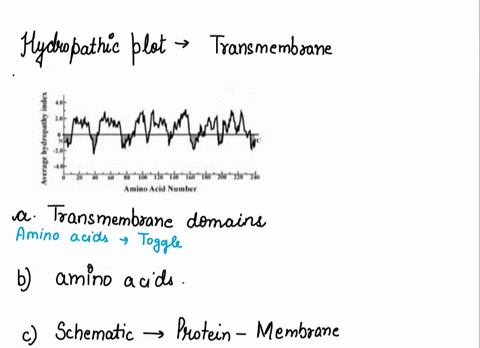 Hydropathic plot → Transmembrane
Average hydropathy index
4.0
2.0
0
-2.0
-4.0
N
C
0 20 40 60 80 100 120 140 160 180 200 220 240
Amino Acid Number
a. Transmembrane domains
Amino acids → Toggle
b) amino acids.
c) Schematic → Protein - Membrane